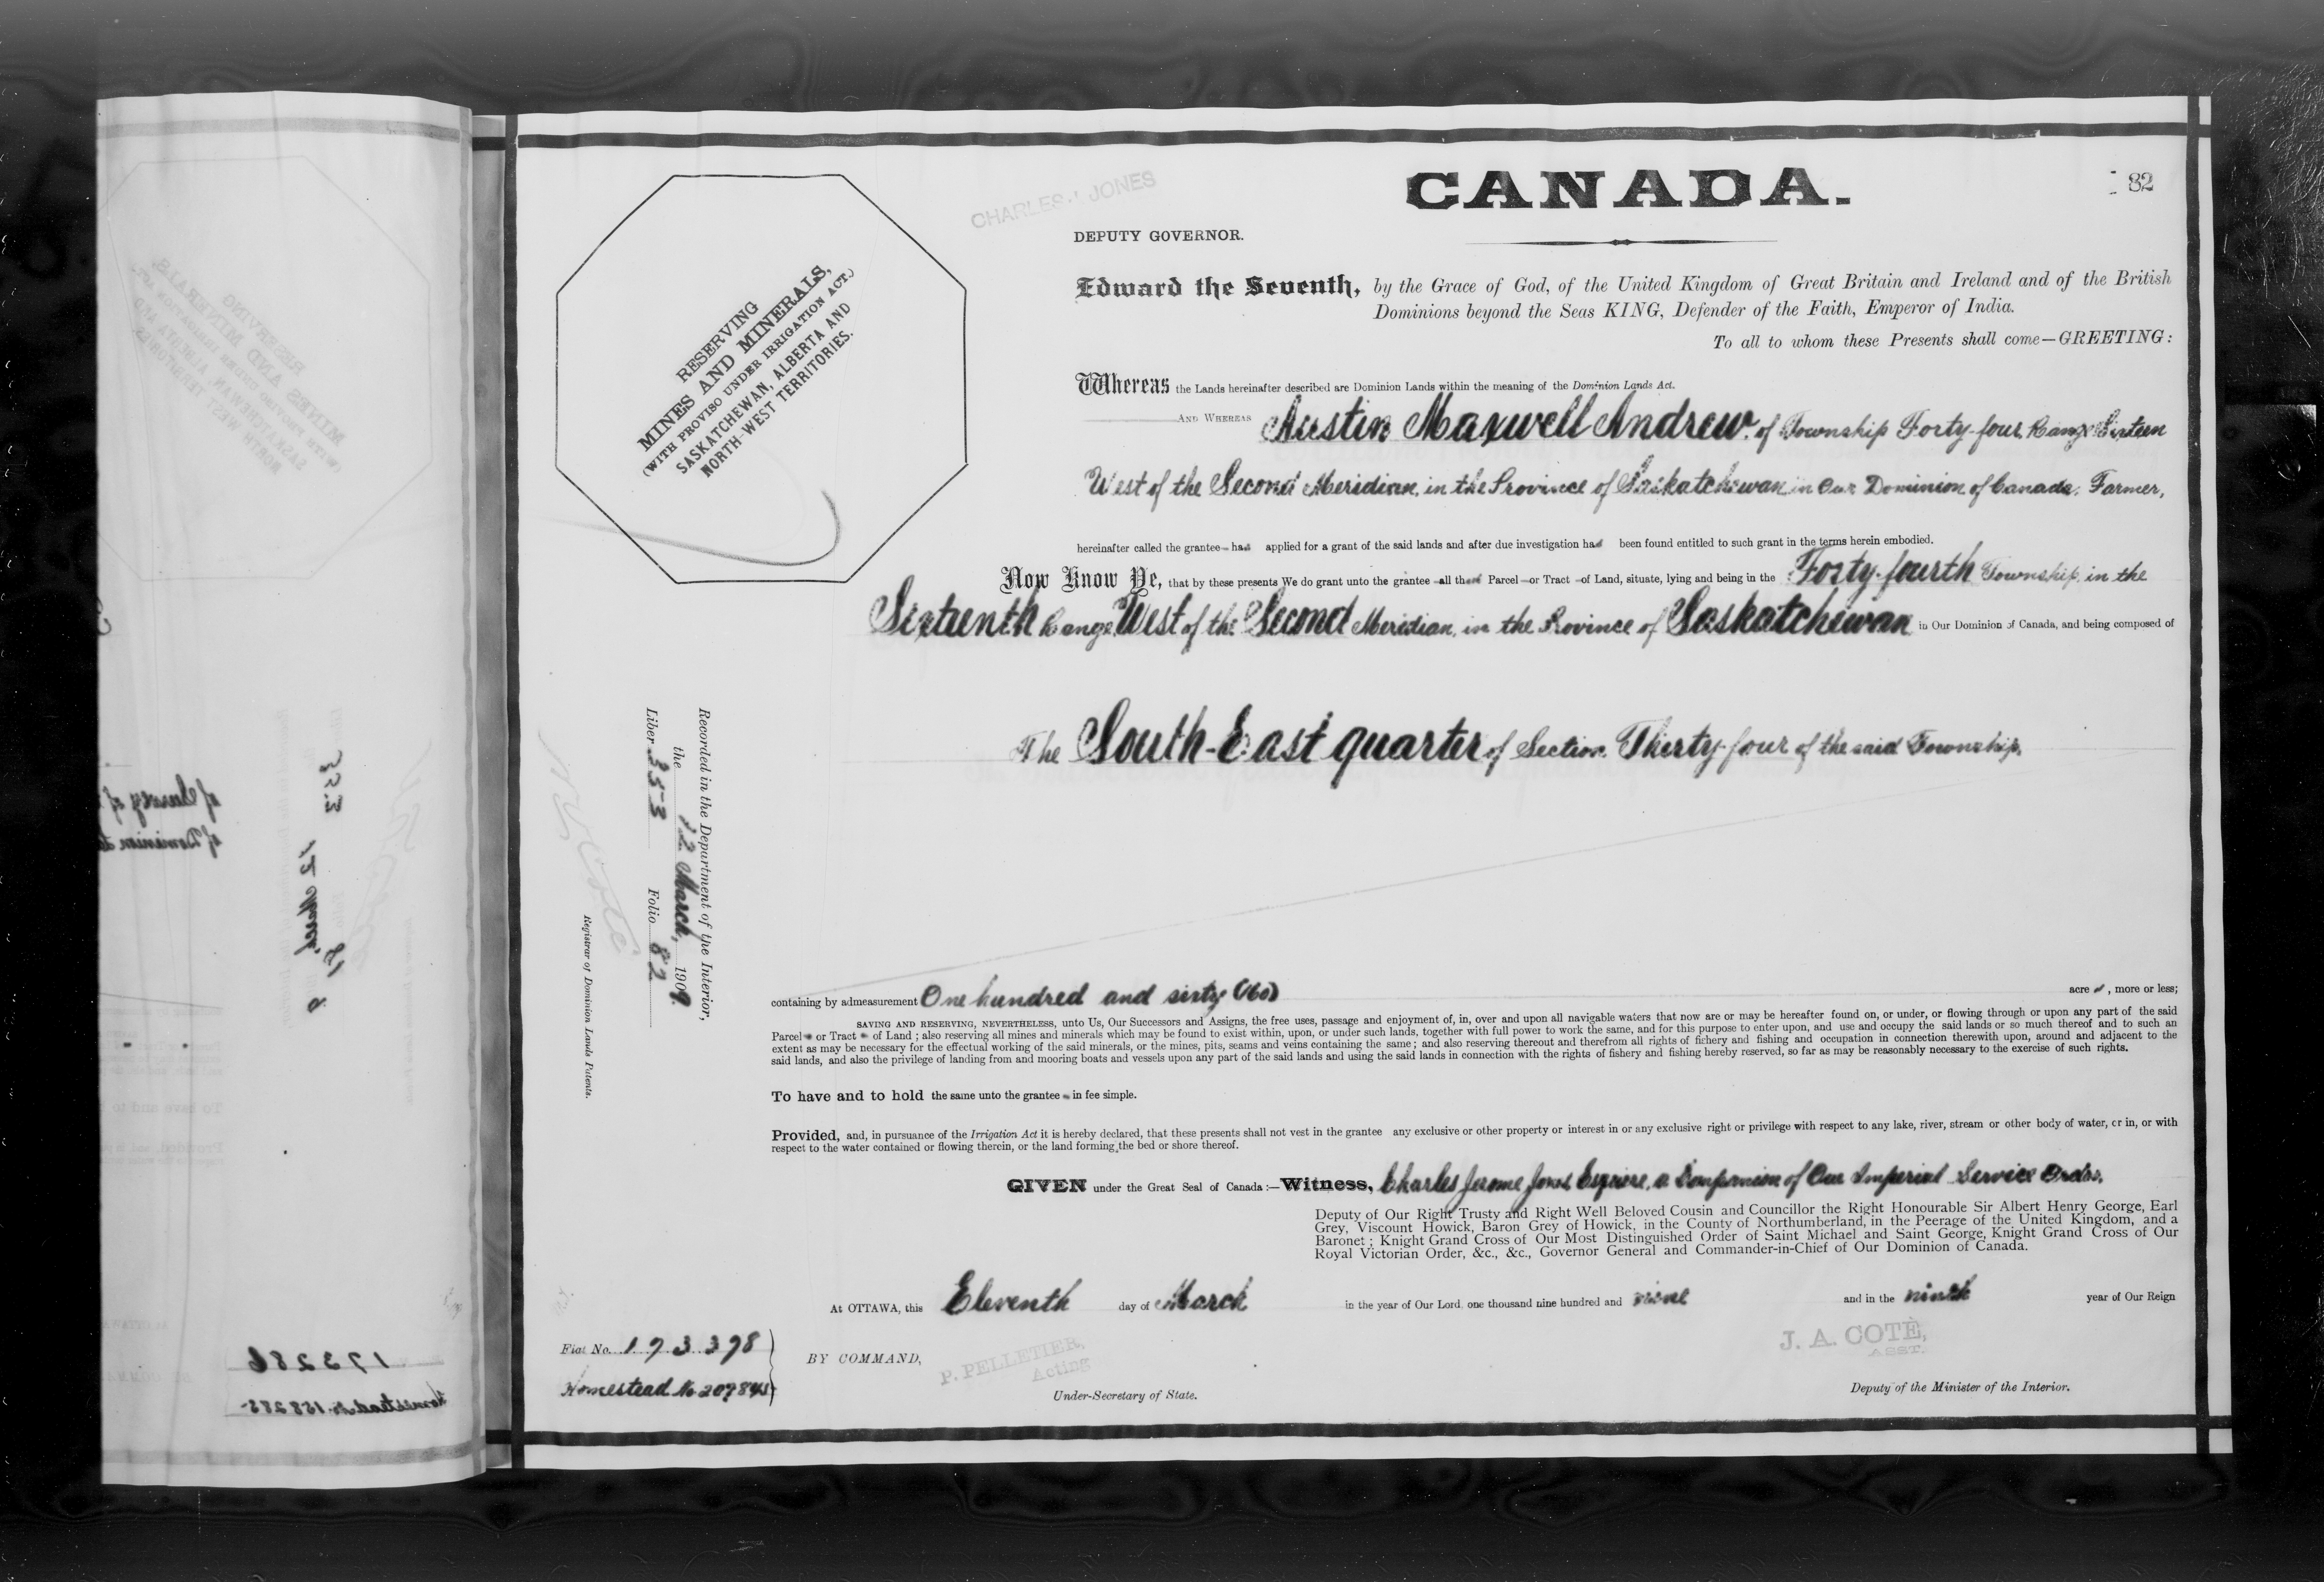 CHARLES J. JONES
CANADA.
82
DEPUTY GOVERNOR.
RESERVING
MINES AND MINERALS,
(WITH PROVISO UNDER IRRIGATION ACT.)
SASKATCHEWAN, ALBERTA AND
NORTH-WEST TERRITORIES.
Edward the Seventh, by the Grace of God, of the United Kingdom of Great Britain and Ireland and of the British
Dominions beyond the Seas KING, Defender of the Faith, Emperor of India.
To all to whom these Presents shall come—GREETING:
Whereas the Lands hereinafter described are Dominion Lands within the meaning of the Dominion Lands Act.
AND WHEREAS Austin Maxwell Andrew, of Township Forty-four, Range Sixteen
West of the Second Meridian, in the Province of Saskatchewan in Our Dominion of Canada, Farmer,
hereinafter called the grantee has applied for a grant of the said lands and after due investigation has been found entitled to such grant in the terms herein embodied.
Now Know Ye, that by these presents We do grant unto the grantee all that Parcel or Tract of Land, situate, lying and being in the Forty-fourth Township, in the
Sixteenth Range West of the Second Meridian, in the Province of Saskatchewan in Our Dominion of Canada, and being composed of
The South-East quarter of Section Thirty-four of the said Township,
Recorded in the Department of the Interior,
the 12 March, 1909.
Liber 353 Folio 82
Registrar of Dominion Lands Patents.
N.O. Coté
containing by admeasurement One hundred and sixty (160) acres, more or less;
SAVING AND RESERVING, NEVERTHELESS, unto Us, Our Successors and Assigns, the free uses, passage and enjoyment of, in, over and upon all navigable waters that now are or may be hereafter found on, or under, or flowing through or upon any part of the said
Parcel or Tract of Land; also reserving all mines and minerals which may be found to exist within, upon, or under such lands, together with full power to work the same, and for this purpose to enter upon, and use and occupy the said lands or so much thereof and to such an
extent as may be necessary for the effectual working of the said minerals, or the mines, pits, seams and veins containing the same; and also reserving thereout and therefrom all rights of fishery and fishing and occupation in connection therewith upon, around and adjacent to the
said lands, and also the privilege of landing from and mooring boats and vessels upon any part of the said lands and using the said lands in connection with the rights of fishery and fishing hereby reserved, so far as may be reasonably necessary to the exercise of such rights.
To have and to hold the same unto the grantee in fee simple.
Provided, and, in pursuance of the Irrigation Act it is hereby declared, that these presents shall not vest in the grantee any exclusive or other property or interest in or any exclusive right or privilege with respect to any lake, river, stream or other body of water, or in, or with
respect to the water contained or flowing therein, or the land forming the bed or shore thereof.
GIVEN under the Great Seal of Canada:—Witness, Charles Jerome Jones Esquire, a Companion of Our Imperial Service Order,
Deputy of Our Right Trusty and Right Well Beloved Cousin and Councillor the Right Honourable Sir Albert Henry George, Earl
Grey, Viscount Howick, Baron Grey of Howick, in the County of Northumberland, in the Peerage of the United Kingdom, and a
Baronet; Knight Grand Cross of Our Most Distinguished Order of Saint Michael and Saint George, Knight Grand Cross of Our
Royal Victorian Order, &c., &c., Governor General and Commander-in-Chief of Our Dominion of Canada.
At OTTAWA, this Eleventh day of March in the year of Our Lord one thousand nine hundred and nine and in the ninth year of Our Reign
Fiat No. 173378
Homestead No 207845
BY COMMAND,
P. PELLETIER,
Acting
Under-Secretary of State.
J. A. COTÉ,
ASST.
Deputy of the Minister of the Interior.
173286
Homestead No. 158285